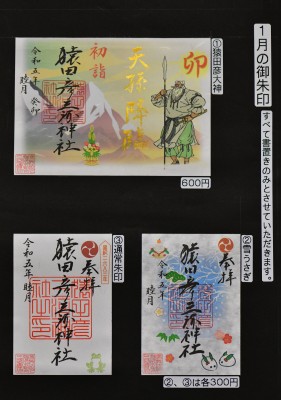 1月の御朱印
すべて書置きのみとさせていただきます。
①猿田彦大神
卯
天孫降臨
初詣
猿田彦三河神社
令和五年 癸卯
睦月
600円
②雪うさぎ
奉拝
猿田彦三河神社
令和五年
睦月
③通常朱印
奉拝
猿田彦三河神社
令和五年 睦月
②、③は各300円